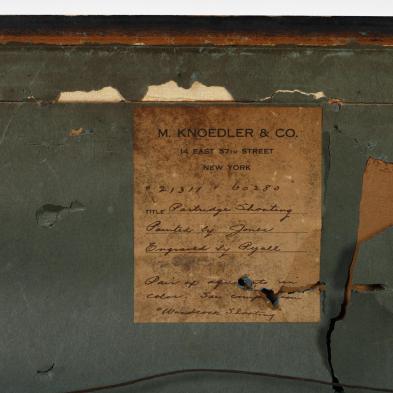 M. KNOEDLER & CO.
14 EAST 57TH STREET
NEW YORK
TITLE Partridge Shooting
Painted by Jones
Engraved by Ryall
Pair of in
color.
"Woodcock Shooting